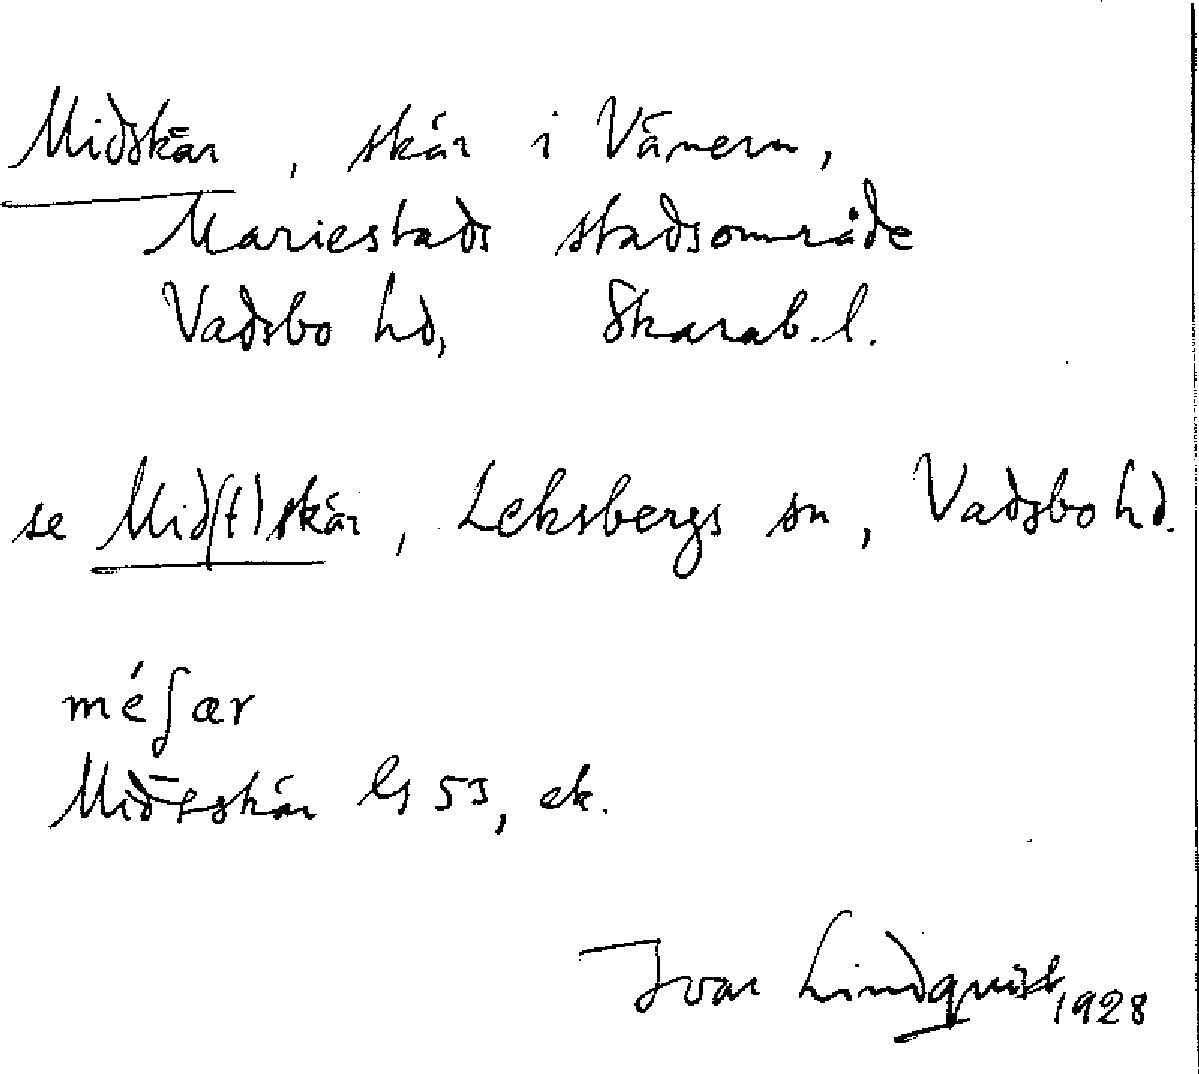 Midskär, skär i Vänern,
Mariestads stadsområde
Vadsbo hd, Skarab. l.
se Mid(t)skär, Leksbergs sn, Vadsbo hd.
méʃær
skär 53, ek.
Ivar Lindquist, 1928